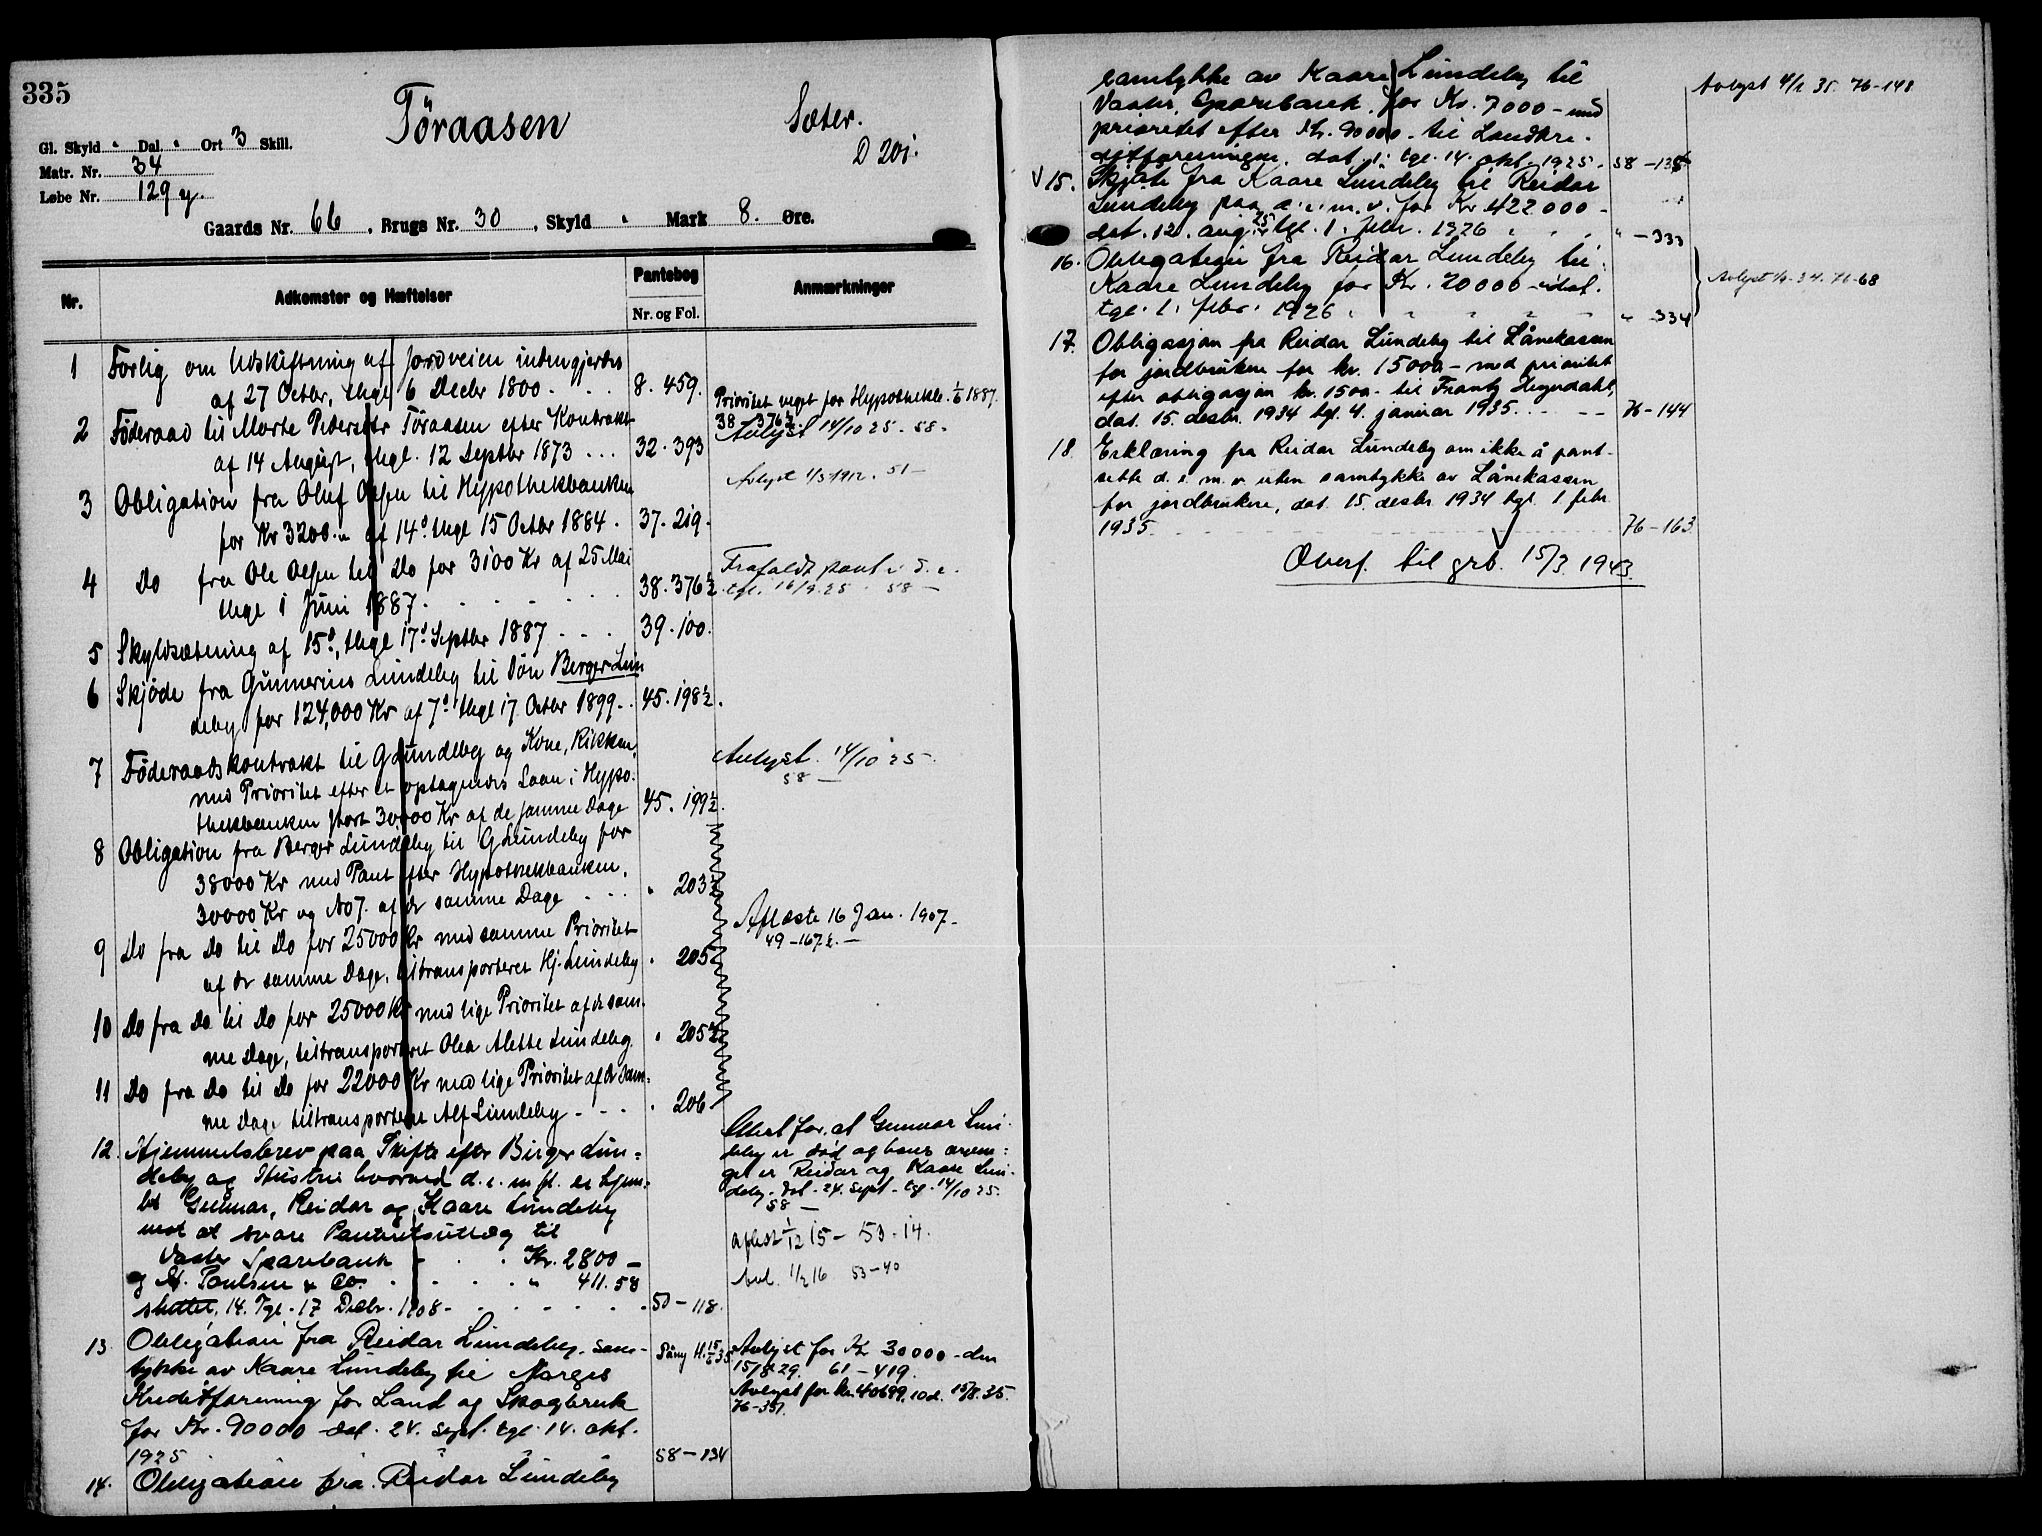 335
Töraasen
Sæter.
D 201.
Gl. Skyld " Dal. " Ort 3 Skill.
Matr. Nr. 34
Løbe Nr. 129 y.
Gaards Nr. 66, Brugs Nr. 30, Skyld " Mark 8. Øre.
Nr.
Adkomster og Hæftelser
Pantebog
Nr. og Fol.
Anmærkninger
1 Forlig om Udskiftning af Jordveien indengjerdes
af 27 Octbr, thgl 6 Decbr 1800 . . . 8. 459.
2 Föderaad til Marte Pedersdtr Töraasen efter Kontrakt
af 14 August, thgl. 12 Septbr 1873 ... 32. 393
Prioritet veget for Hypothekbk. 1/6 1887.
38-376½.
Avlyst 14/10 25. 58-
3 Obligation fra Oluf Olsen til Hypothekbanken
for Kr 3200.. af 14d thgl 15 Octbr 1884. 37. 219.
Avlyst 1/3 1912. 51-
4 Do fra Ole Olsen til Do for 3100 Kr af 25 Mai
thgl 1 Juni 1887. . . . 38. 376½.
Frafaldt pant i d. e.
tgl. 16/9 25. 58-
5 Skyldsætning af 15d, thgl 17d Septbr 1887 . . . 39. 100.
6 Skjöde fra Gunnerius Lundeby til Sön Berger Lun
deby for 124,000 Kr af 7d thgl 17 Octbr 1899 . . 45. 198½.
7 Föderaadskontrakt til G Lundeby og Kone, Rikken,
med Prioritet efter et optagendes Laan i Hypo-
thekbanken stort 30000 Kr af de samme Dage 45. 199½.
Avlyst. 14/10 25.
58-
8 Obligation fra Berger Lundeby til G Lundeby for
38000 Kr med Pant efter Hypothekbanken,
30000 Kr og No 7. af de samme Dage . . . " 203½
9 Do fra Do til Do for 25000 Kr med samme Prioritet
af de samme Dage, tiltransporteret Hj. Lundeby " 205
Aflæste 16 Jan. 1907-
49-167½.-
10 Do fra Do til Do for 25000 Kr med lige Prioritet af de sam-
me Dage, tiltransporteret Olea Alette Lundeby " 205½
11 Do fra Do til Do for 22000 Kr med lige Prioritet af de sam-
me Dage tiltransporteret Alf Lundeby . . . " 206
12. Hjemmelsbrev paa Skifte efter Birger Lun-
deby og Hustru hvorved d. e. m fl. er hjem-
let Gunnar, Reidar og Kaare Lundeby
mot at svare Panteutlæg til
Vaaler Sparebank . . Kr. 2800 -
og M. Poulsen & Co. . . " 411.58
sluttet, 14. Tgl. 17 Decbr. 1908 . . . 50-118.
Attest for, at Gunnar Lun-
deby er död og hans arvin-
ger er Reidar og Kaare Lun-
deby. dat. 24. sept. tgl. 14/10 25.
58-
aflæst 1/12 15 - 53-14.
Avl. 1/2 16 53-40
13. Obligation fra Reidar Lundeby, sam-
tykke av Kaare Lundeby til Norges
Kreditforening for Land og Skogbruk
for Kr. 90000 dat. 24. sept. tgl. 14. okt.
1925 58-134
Avlyst for Kr 30000 - den
15/8 29. 61-419.
Avlyst for kr. 40699.10 d. 15/8. 35.
76-351.
14. Obligation fra Reidar Lundeby
samtykke av Kaare Lundeby til
Vaaler Sparebank for Kr. 7000 - med
prioritet efter Kr. 90000 - til Landkre-
ditforeningen. dat. i. tgl. 14. okt. 1925. 58-135
Avlyst 4/1 35. 76-148
v 15. Skjøte fra Kaare Lundeby til Reidar
Lundeby paa d. e. m. v. for Kr 422000 -
dat. 12. aug. 25 tgl. 1. febr. 1926 . . . " -333
16. Obligation fra Reidar Lundeby til
Kaare Lundeby for Kr. 20000 - dat.
tgl. 1. febr. 1926 " -334
17. Obligasjon fra Reidar Lundeby til Lånekassen
for jordbrukere for kr. 15000 - med prioritet
efter obligasjon kr. 1500 - til Frantz Heyerdahl,
dat. 15. desbr. 1934 tgl. 4. januar 1935. . - - 76-144
18. Erklæring fra Reidar Lundeby om ikke å pant-
sette d. e. m. v. uten samtykke av Lånekassen
for jordbrukere, dat. 15. desbr 1934 tgl. 1 febr
1935. 76-163
Overf. til grb. 15/3. 1943.